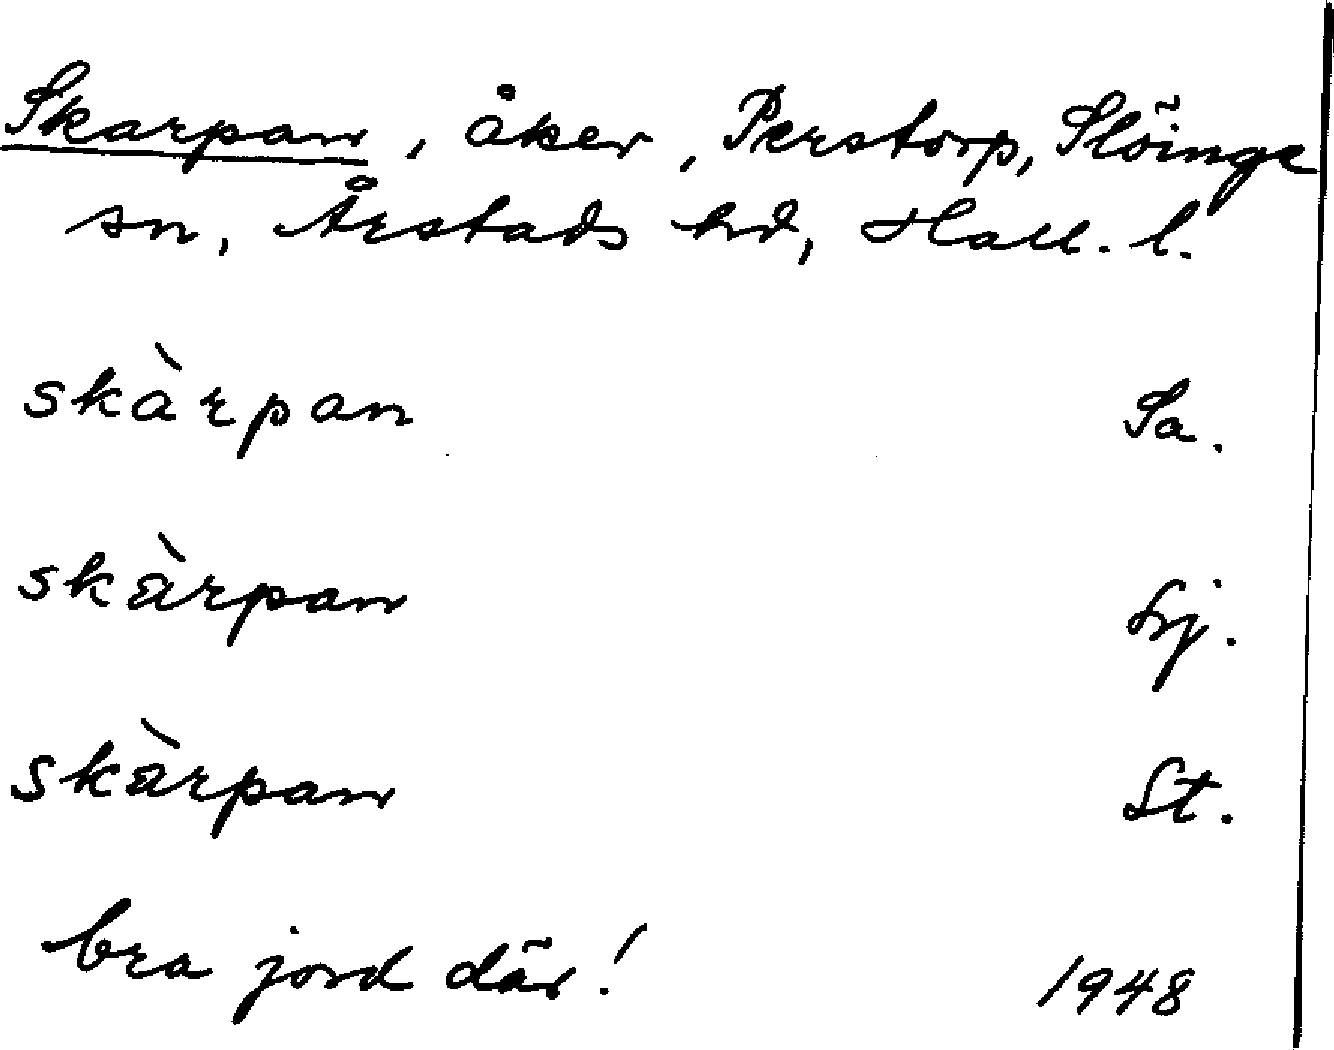 Skarpan, åker, Perstorp, Slöinge
sn, Årstads hd, Hall. l.
skàrpan Sa.
skàrpan Lrj.
skàrpan St.
bra jord där! 1948